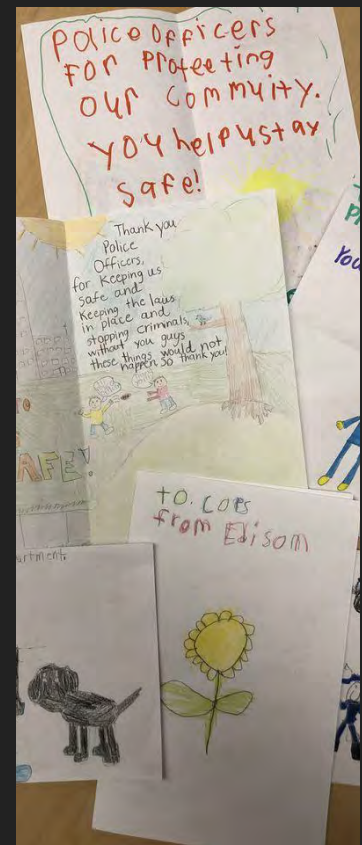 Police officers
For Protecting
our Commuity.
you help ustay
safe!
Thank you
Police
Officers,
for keeping us
safe and
keeping the laws
in place and
stopping criminals,
without you guys
these things would not
happen so thank you!
You
TO
AFE!
to. cops
from Edisom
artment